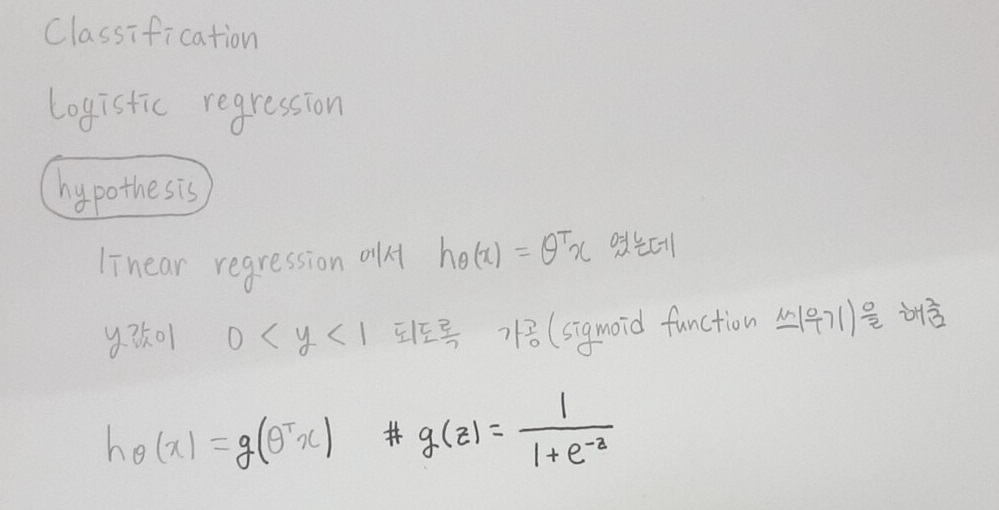 Classification
Logistic regression
hypothesis
linear regression 에서 hθ(x) = θᵀx 였는데
y값이 0 < y < 1 되도록 가공(sigmoid function 씌우기)을 해줌
hθ(x) = g(θᵀx) # g(z) = 1/(1+e⁻ᶻ)